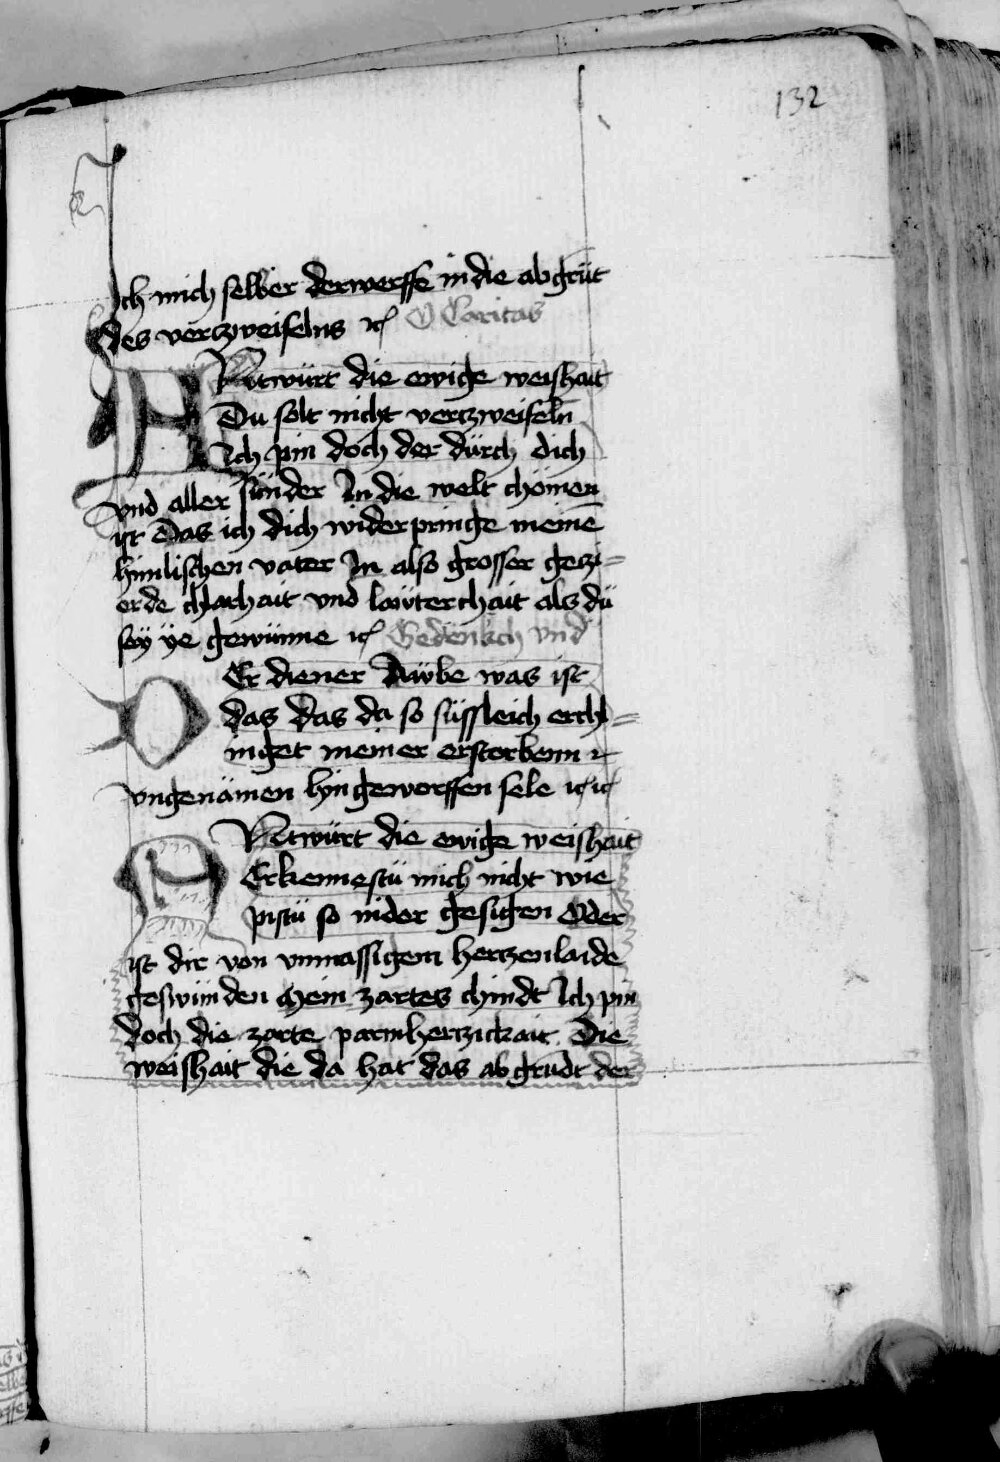 132
Ich mich selber derwerffe in die abgrüt
des vertzweifelns ꝛc O Caritas
Antwürt die ewige weishait
Du solt nicht vertzweifeln
Ich pin doch der dürch dich
vnd aller sünder In die welt chömen
ist Das ich dich widerpringe meinē
himlischen vater In also grosser getzi=
erde chlarhait vnd laẅterchait als dü
sey ÿe gewünne ꝛc Gedenkch vnd
Der diener Awbe was ist
das das da so süssleich erchl=
inget meiner erstorbenn ꝛ
vngenämen hin geworffen sele ꝛc ꝛc
Antwürt die ewige weishait
Erkennestü mich nicht wie
pistü so nider gesigen Oder
ist dir von vnmassigem hertzenlaide
geswünden Mein zartes chindt Ich pin
doch die zarte parmhertzickait Die
weishait die da hat das abgrüdt der